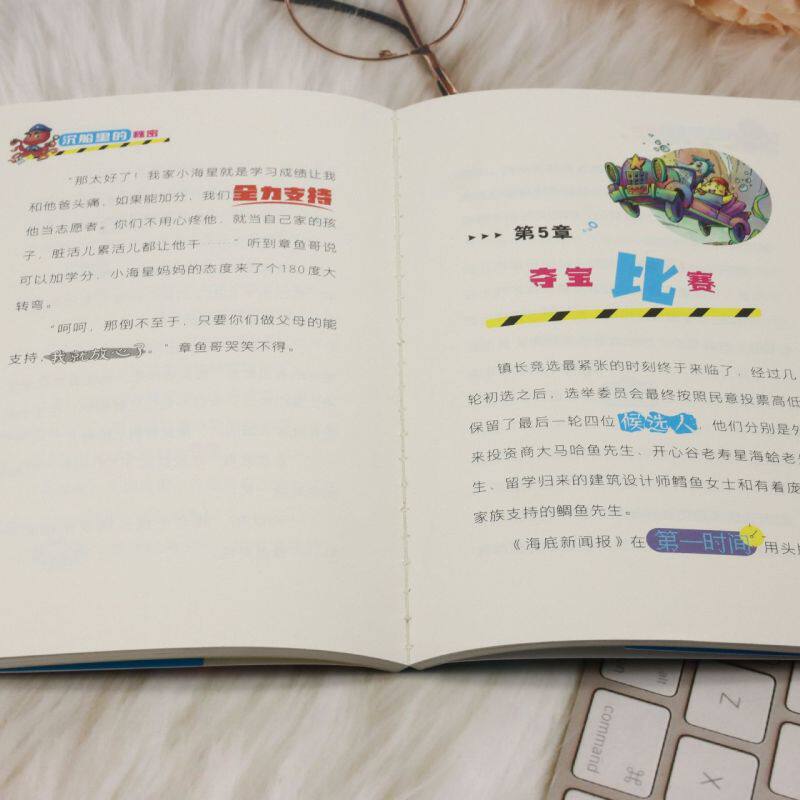 沉船里的秘密
“那太好了！我家小海星就是学习成绩让我
和他爸头痛，如果能加分，我们全力支持
他当志愿者。你们不用心疼他，就当自己家的孩
子，脏活儿累活儿都让他干……”听到章鱼哥说
可以加学分，小海星妈妈的态度来了个180度大
转弯。
“呵呵，那倒不至于，只要你们做父母的能
支持，我就放心了。”章鱼哥哭笑不得。
第5章
夺宝比赛
镇长竞选最紧张的时刻终于来临了，经过几
轮初选之后，选举委员会最终按照民意投票高低
保留了最后一轮四位候选人，他们分别是外
来投资商大马哈鱼先生、开心谷老寿星海蛤老先
生、留学归来的建筑设计师鳕鱼女士和有着庞
家族支持的鲷鱼先生。
《海底新闻报》在第一时间用头
alt
Z
command
⌘
X